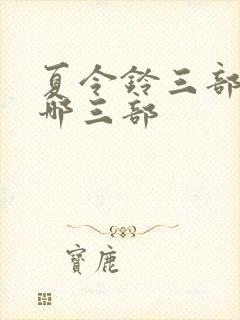 夏令铃三部
哪三部
寶鹿